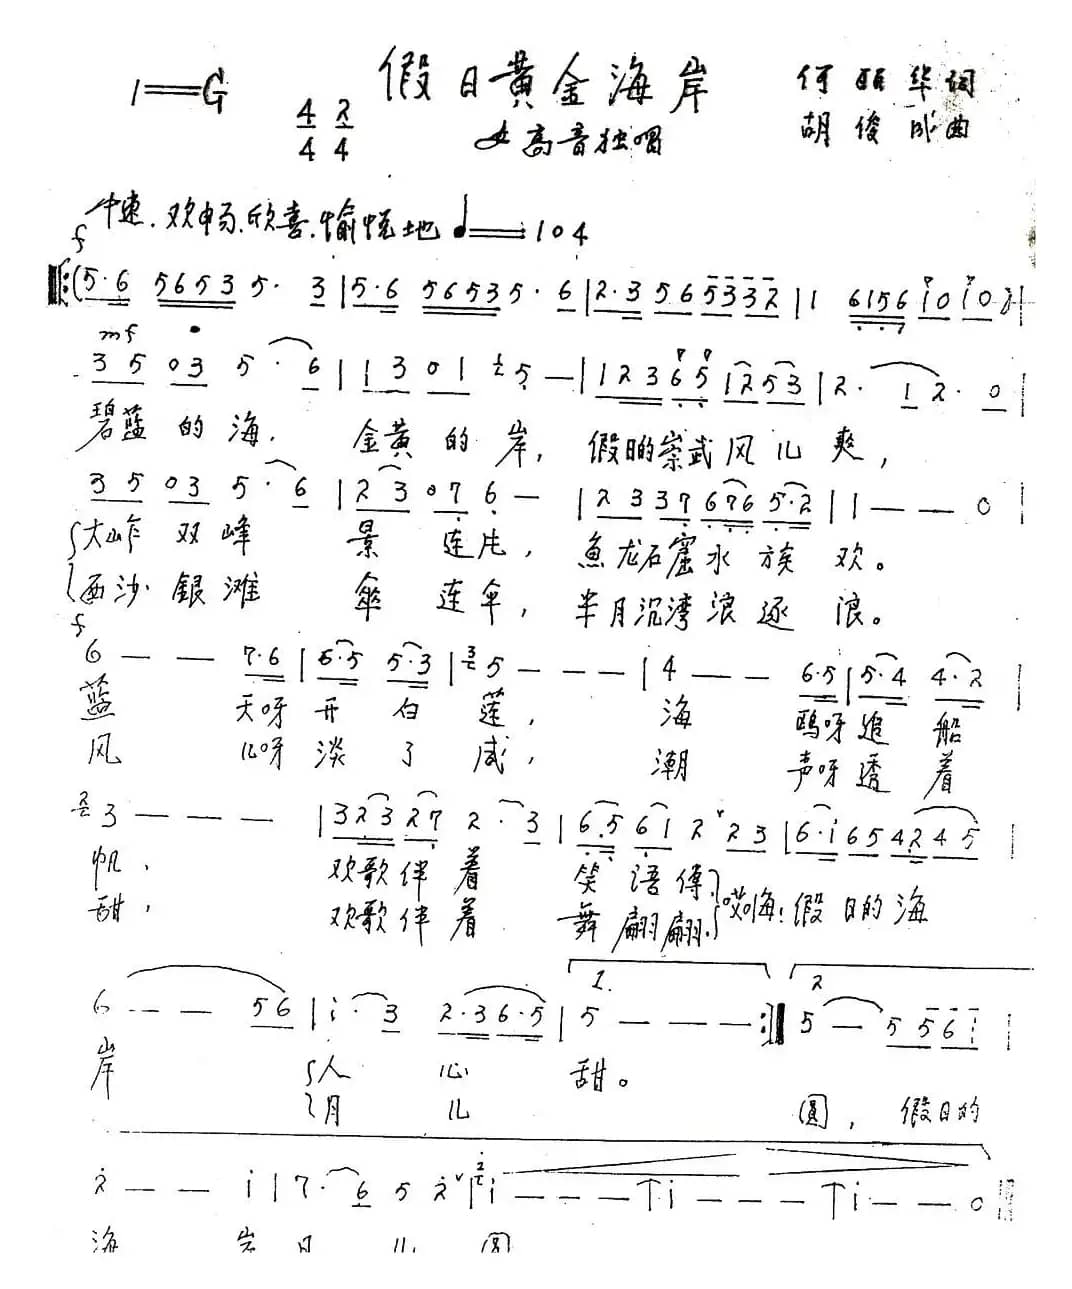 1=G 4/4 2/4 假日黄金海岸 何丽华词
女高音独唱 胡俊成曲
中速.欢畅、欣喜.愉悦地 ♩=104
f
(5·6 5653 5· 3 | 5·6 56535· 6 | 2·3 565332 | 1 6156 i0 i0)|
mf
35 03 5· 6 | 13 01 5 — | 12365 1253 | 2· 12· 0 |
碧蓝的海. 金黄的岸, 假日的崇武风儿爽,
35 03 5· 6 | 23 07 6 — | 2337 676 5·2 | 1 — — 0 |
大岞双峰 景连片, 魚龙石窟水族欢。
西沙銀滩 傘连伞, 半月沉湾浪逐浪。
f
6 — — 7·6 | 6·5 5·3 | 5 — — — | 4 — — 6·5 | 5·4 4·2 |
蓝 天呀开白莲, 海 鸥呀追船
风 儿呀淡了咸, 潮 声呀透着
3 — — — | 323 27 2· 3 | 6·5 61 2 23 | 6·i 65 42 45 |
帆, 欢歌伴着 笑语傳.哎嗨!假日的海
甜, 欢歌伴着 舞翩翩.
1. 2
6 — — 56 | i· 3 2·36·5 | 5 — — — :| 5 — 5 56i |
岸 人心 甜。
月儿 圆, 假日的
2 — — i | 7· 6 5 2 | i — — — ↑i — — — ↑i — — 0
海 岸月儿圆